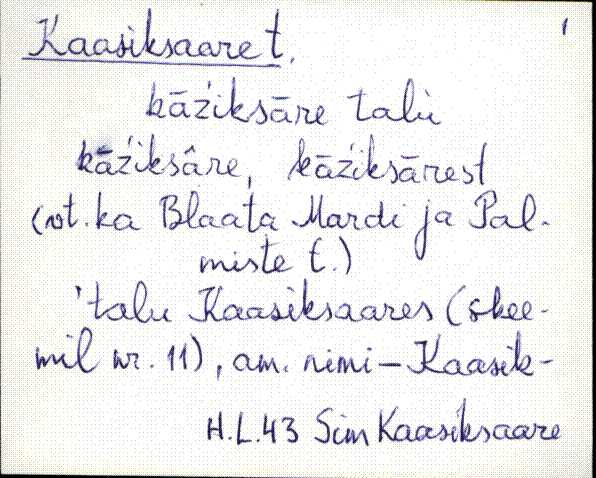 Kaasiksaare t. 1
kāźiksāre talù
kāźiksâre, kāźiksārest
(vt. ka Blaata Mardi ja Pal-
miste t.)
'talu Kaasiksaares (skee-
mil nr. 11), am. nimi – Kaasik-
H.L.43 Sim Kaasiksaare